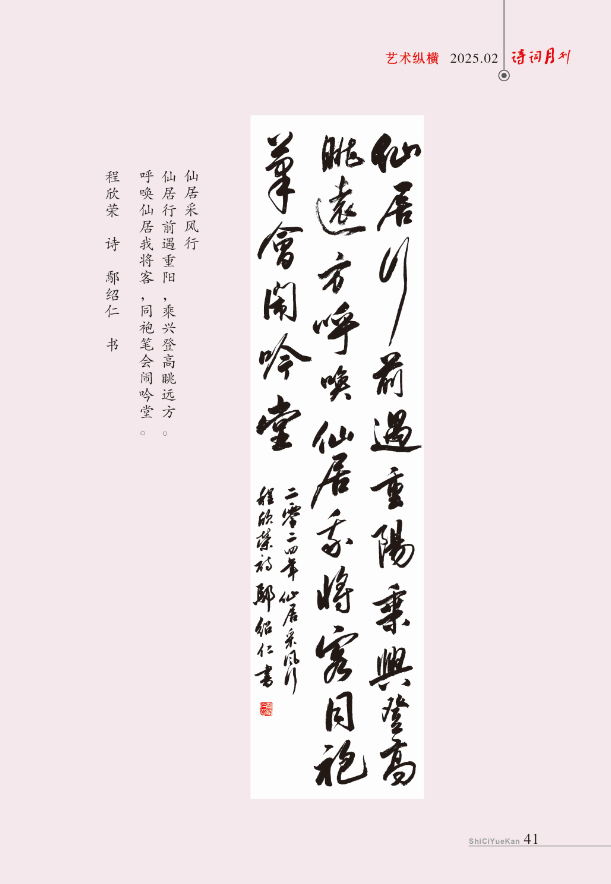 艺术纵横 2025.02 诗词月刊
仙居采风行
仙居行前遇重阳，乘兴登高眺远方。
呼唤仙居我将客，同袍笔会闹吟堂。
程欣荣 诗 鄢绍仁 书
仙居行前遇重陽乘興登高
眺遠方呼唤仙居我將客同袍
筆會闹吟堂
二零二四年仙居采风行
程欣荣诗鄢绍仁書
ShiCiYueKan 41